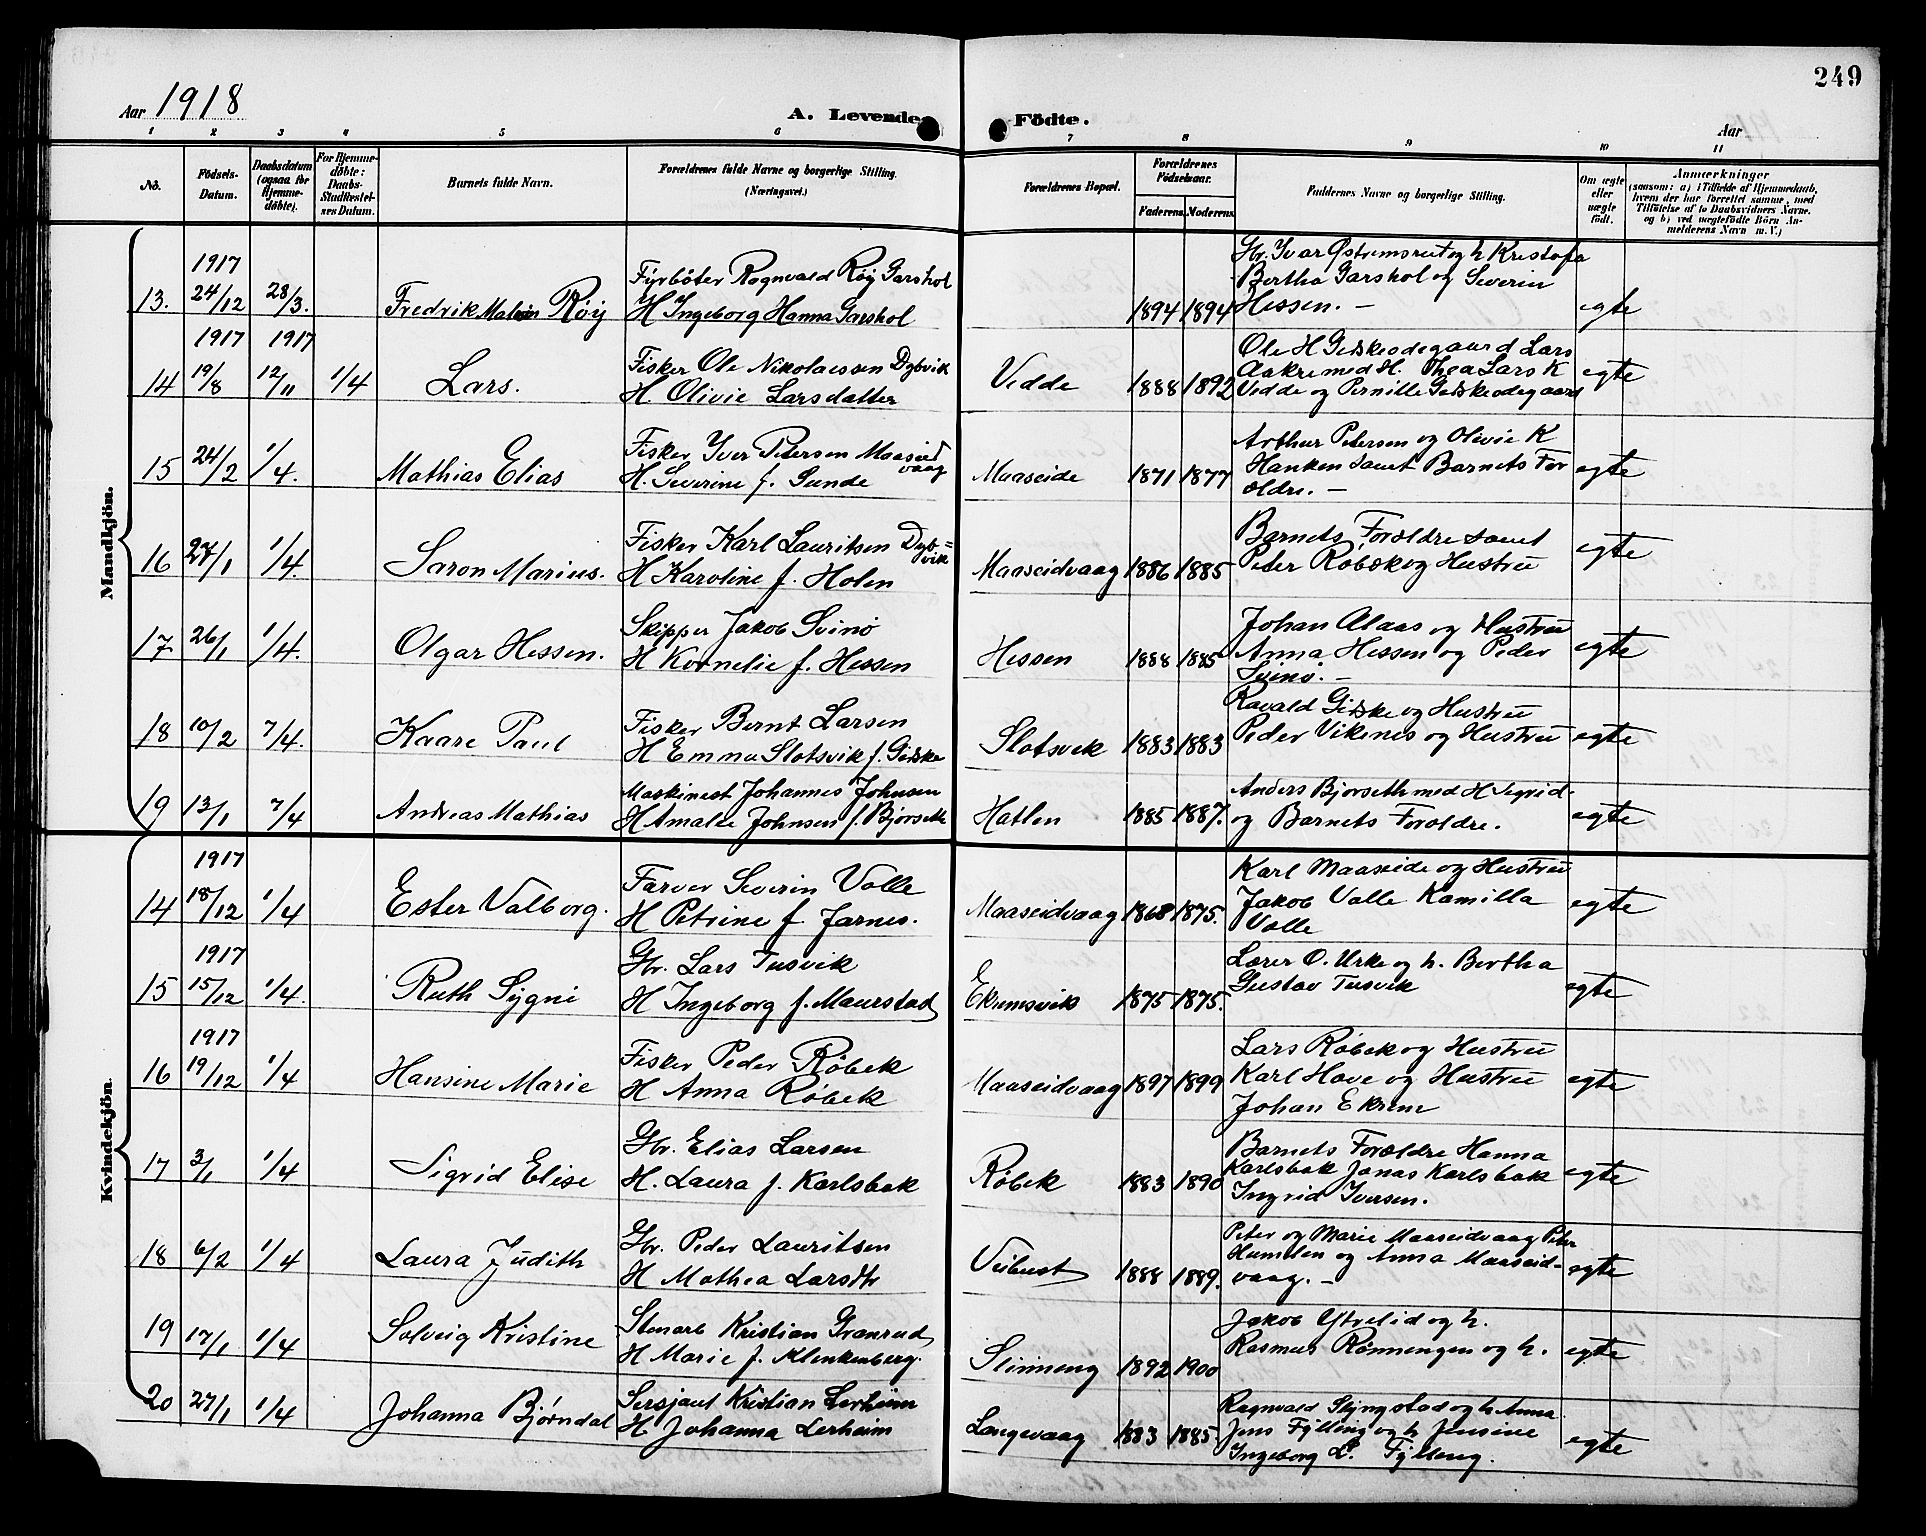 249
Aar 1918
A. Levende Födte.
Aar
1 2 3 4 5 6 7 8 9 10 11
No.
Födsels-Datum.
Daabsdatum (ogsaa for Hjemmedöbte).
For Hjemmedöbte: Daabs-Stadfæstelsens Datum.
Barnets fulde Navn.
Forældrenes fulde Navne og borgerlige Stilling. (Næringsvei.)
Forældrenes Bopæl.
Forældrenes Födselsaar.
Faderens. Moderens.
Faddernes Navne og borgerlige Stilling.
Om ægte eller uægte født.
Anmærkninger
(saasom: a) i Tilfælde af Hjemmedaab, hvem der har forrettet samme, med Tilføielse af to Daabsvidners Navne, og b) ved uægtefödte Börn Anmelderens Navn m. V.)
Mandkjön.
1917
13. 24/12 28/3. Fredrik Røy
Fyrbøter Ragnvald Røy Garshol
H Ingeborg Hanna Garshol
1894 1894
Hr. Ivar Østremsreit og h Kristofa
Bertha Garshol og Severin
Hessen. —
egte
1917 1917
14 19/8 12/11 1/4 Lars.
Fisker Ole Nikolaessen Dybvik
H. Olivie Larsdatter
Vedde 1888 1892
Ole H Giskeødegaard Lars
Aakre med H. Thea Lars K
Vedde og Pernille Giskeødegaard
egte
15 24/2 1/4. Mathias Elias
Fisker Iver Petersen Maaseidvaag
H. Severine f. Sunde
Maaseide 1871 1877
Arthur Petersen og Olivie K
Hanken samt Barnets For
ældre. —
egte
16 27/1 1/4. Saron Marius.
Fisker Karl Lauritsen Dybvik
H Karoline f. Holen
Maaseidvaag 1886 1885
Barnets Forældre samt
Peter Røbæk og Hustru
egte
17 26/1 1/4. Olgar Hessen.
Skipper Jakob Svinø
H Kornelie f. Hessen
Hessen 1888 1885
Johan Alaas og Hustru
Anna Hessen og Peder
Svinø. —
egte
18 10/2 7/4. Kaare Paul
Fisker Bernt Larsen
H Emma Slotsvik f. Giske
Slotsvik 1883 1883
Ravald Giske og Hustru
Peder Vikenes og Hustru
egte
19 13/1 7/4 Andreas Mathias
Maskinest Johannes Johnsen
H Amalie Johnsen f. Bjørseth
Hatlen 1885 1887.
Anders Bjørseth med H Sigrid
og Barnets Forældre.
egte
Kvindekjön.
1917
14 18/12 1/4 Ester Valborg.
Farver Severin Valle
H Petrine f Jarnes.
Maaseidvaag 1868 1875.
Karl Maaseide og Hustru
Jakob Valle Kamilla
Valle
egte
1917
15 15/12 1/4. Ruth Sygni
Gbr. Lars Tusvik
H Ingeborg f. Maurstad
Ekremsvik 1875 1875.
Lærer O. Urke og h. Bertha
Gustav Tusvik
egte
1917
16 19/12 1/4 Hansine Marie
Fisker Peder Røbek
H Anna Røbek
Maaseidvaag 1897 1899
Lars Røbek og Hustru
Karl Hove og Hustru
Johan Ekrem
egte
17 3/1 1/4 Sigrid Elise
Gbr. Elias Larsen
H. Laura f. Karlsbak
Røbek 1883 1890
Barnets Forældre Hanna
Karlsbak Jonas Karlsbak
Ingrid Iversen.
egte
18 6/2 1/4 Laura Judith
Gbr. Peder Lauritsen
H Mathea Larsdtr
Veibust 1888 1889.
Peter og Marie Maaseidvaag Peter
Humlen og Anna Maaseid-
vaag. —
egte
19 17/1 1/4 Solveig Kristine
Stenarb Kristian Granrud
H Marie f. Klenkenberg.
Slinneng 1892 1900
Jakob Ytrelid og h.
Rasmus Rønnengen og h.
egte
20 27/1 1/4 Johanna Bjørndal
Sersjant Kristian Lerheim
H Johanna Lerheim
Langevaag 1883 1885.
Ragnvald Slyngstad og h Anna
Jens Fylling og h Jensine
Ingeborg L. Fylling.
egte